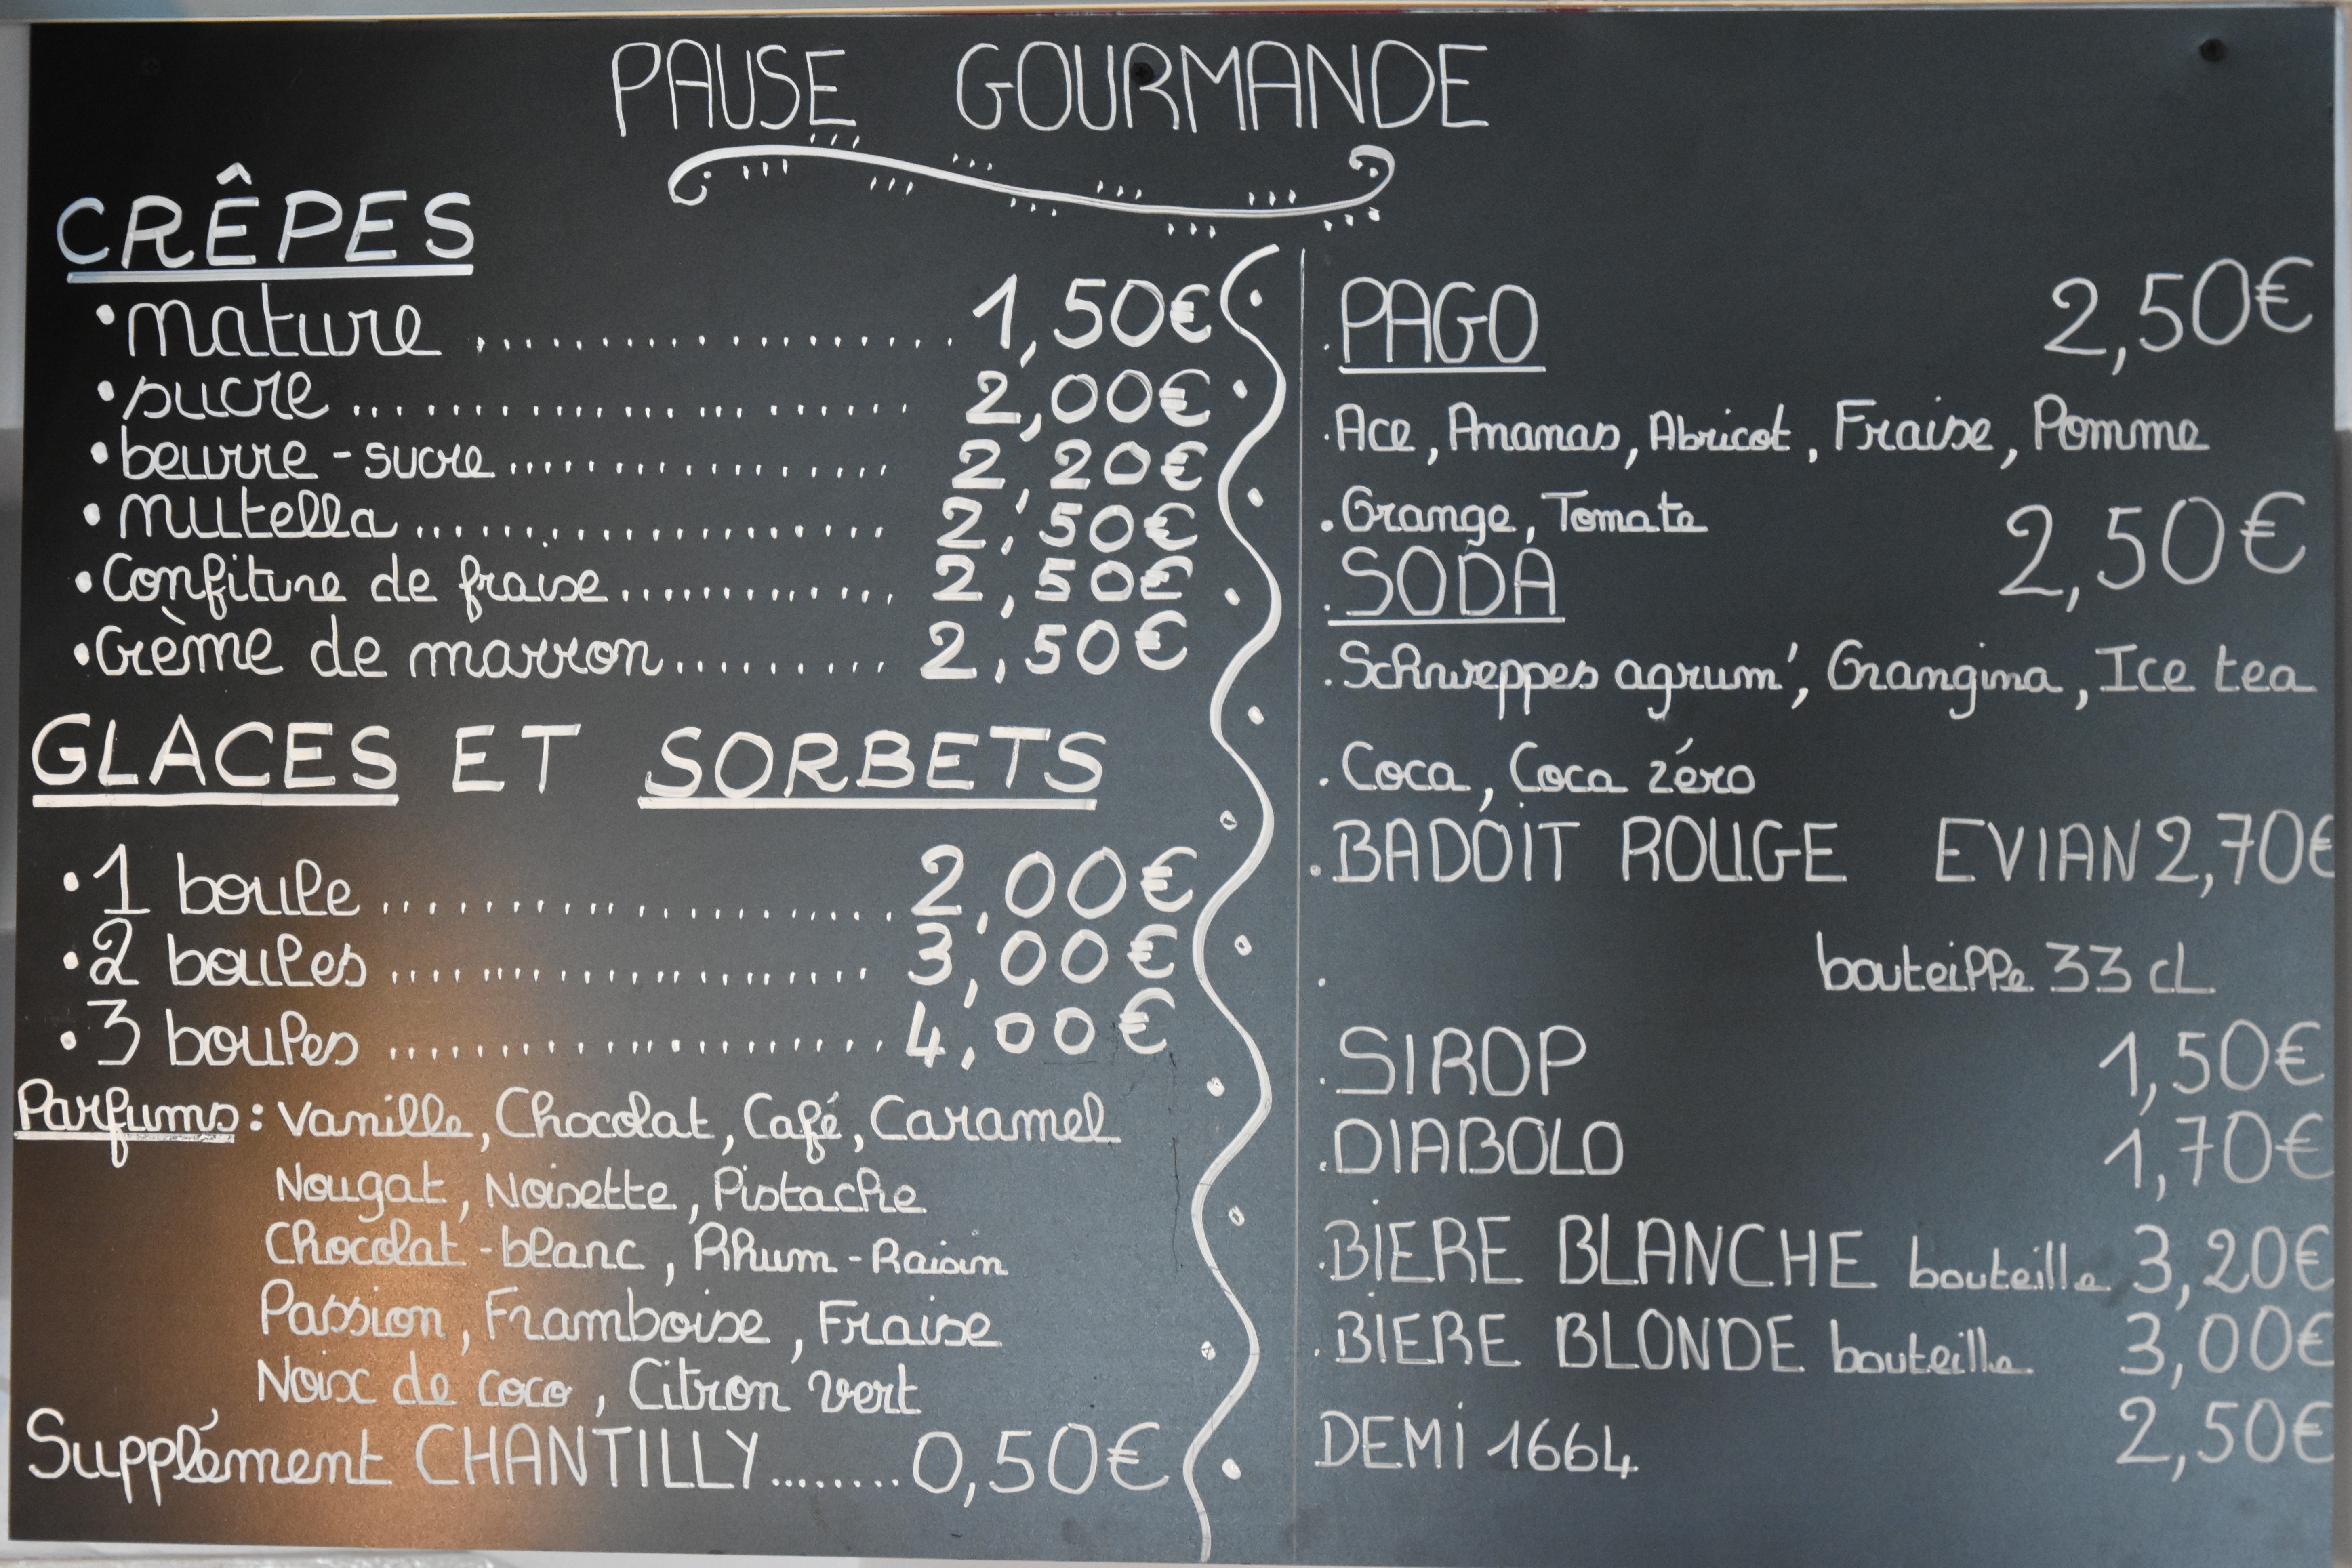 PAUSE GOURMANDE
CRÊPES
•nature .................. 1,50€
•sucre .................. 2,00€
•beurre-sucre .................. 2,20€
•nutella .................. 2,50€
•Confiture de fraise ............. 2,50€
•Crème de marron ......... 2,50€
GLACES ET SORBETS
•1 boule .................. 2,00€
•2 boules .................. 3,00€
•3 boules .................. 4,00€
Parfums : Vanille, Chocolat, Café, Caramel
Nougat, Noisette, Pistache
Chocolat-blanc, Rhum-Raisin
Passion, Framboise, Fraise
Noix de coco, Citron vert
Supplément CHANTILLY ........ 0,50€
.PAGO 2,50€
.Ace, Ananas, Abricot, Fraise, Pomme
.Orange, Tomate
.SODA 2,50€
.Schweppes agrum', Orangina, Ice tea
.Coca, Coca zéro
.BADOIT ROUGE EVIAN 2,70€
. bouteille 33 cL
.SIROP 1,50€
.DIABOLO 1,70€
.BIERE BLANCHE bouteille 3,20€
.BIERE BLONDE bouteille 3,00€
DEMI 1664 2,50€